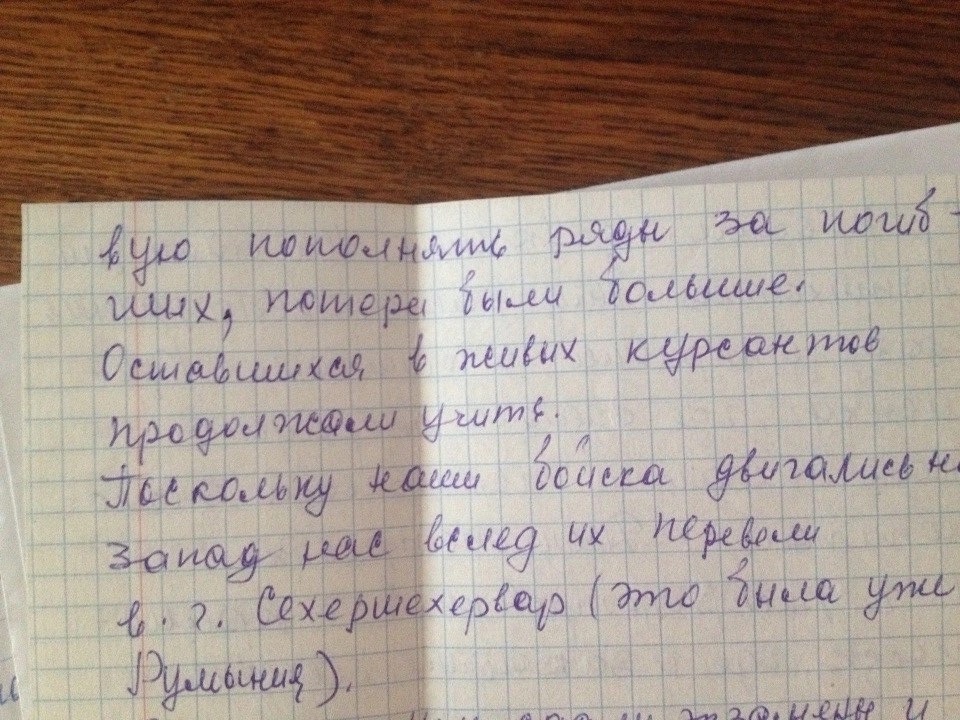 вую пополнять ряды за погиб-
ших, потери были больше.
Оставшихся в живых курсантов
продолжали учить.
Поскольку наши войска двигались на
запад нас вслед их перевели
в. г. Сехершехервар (это была уже
Румыния).
экзамены и